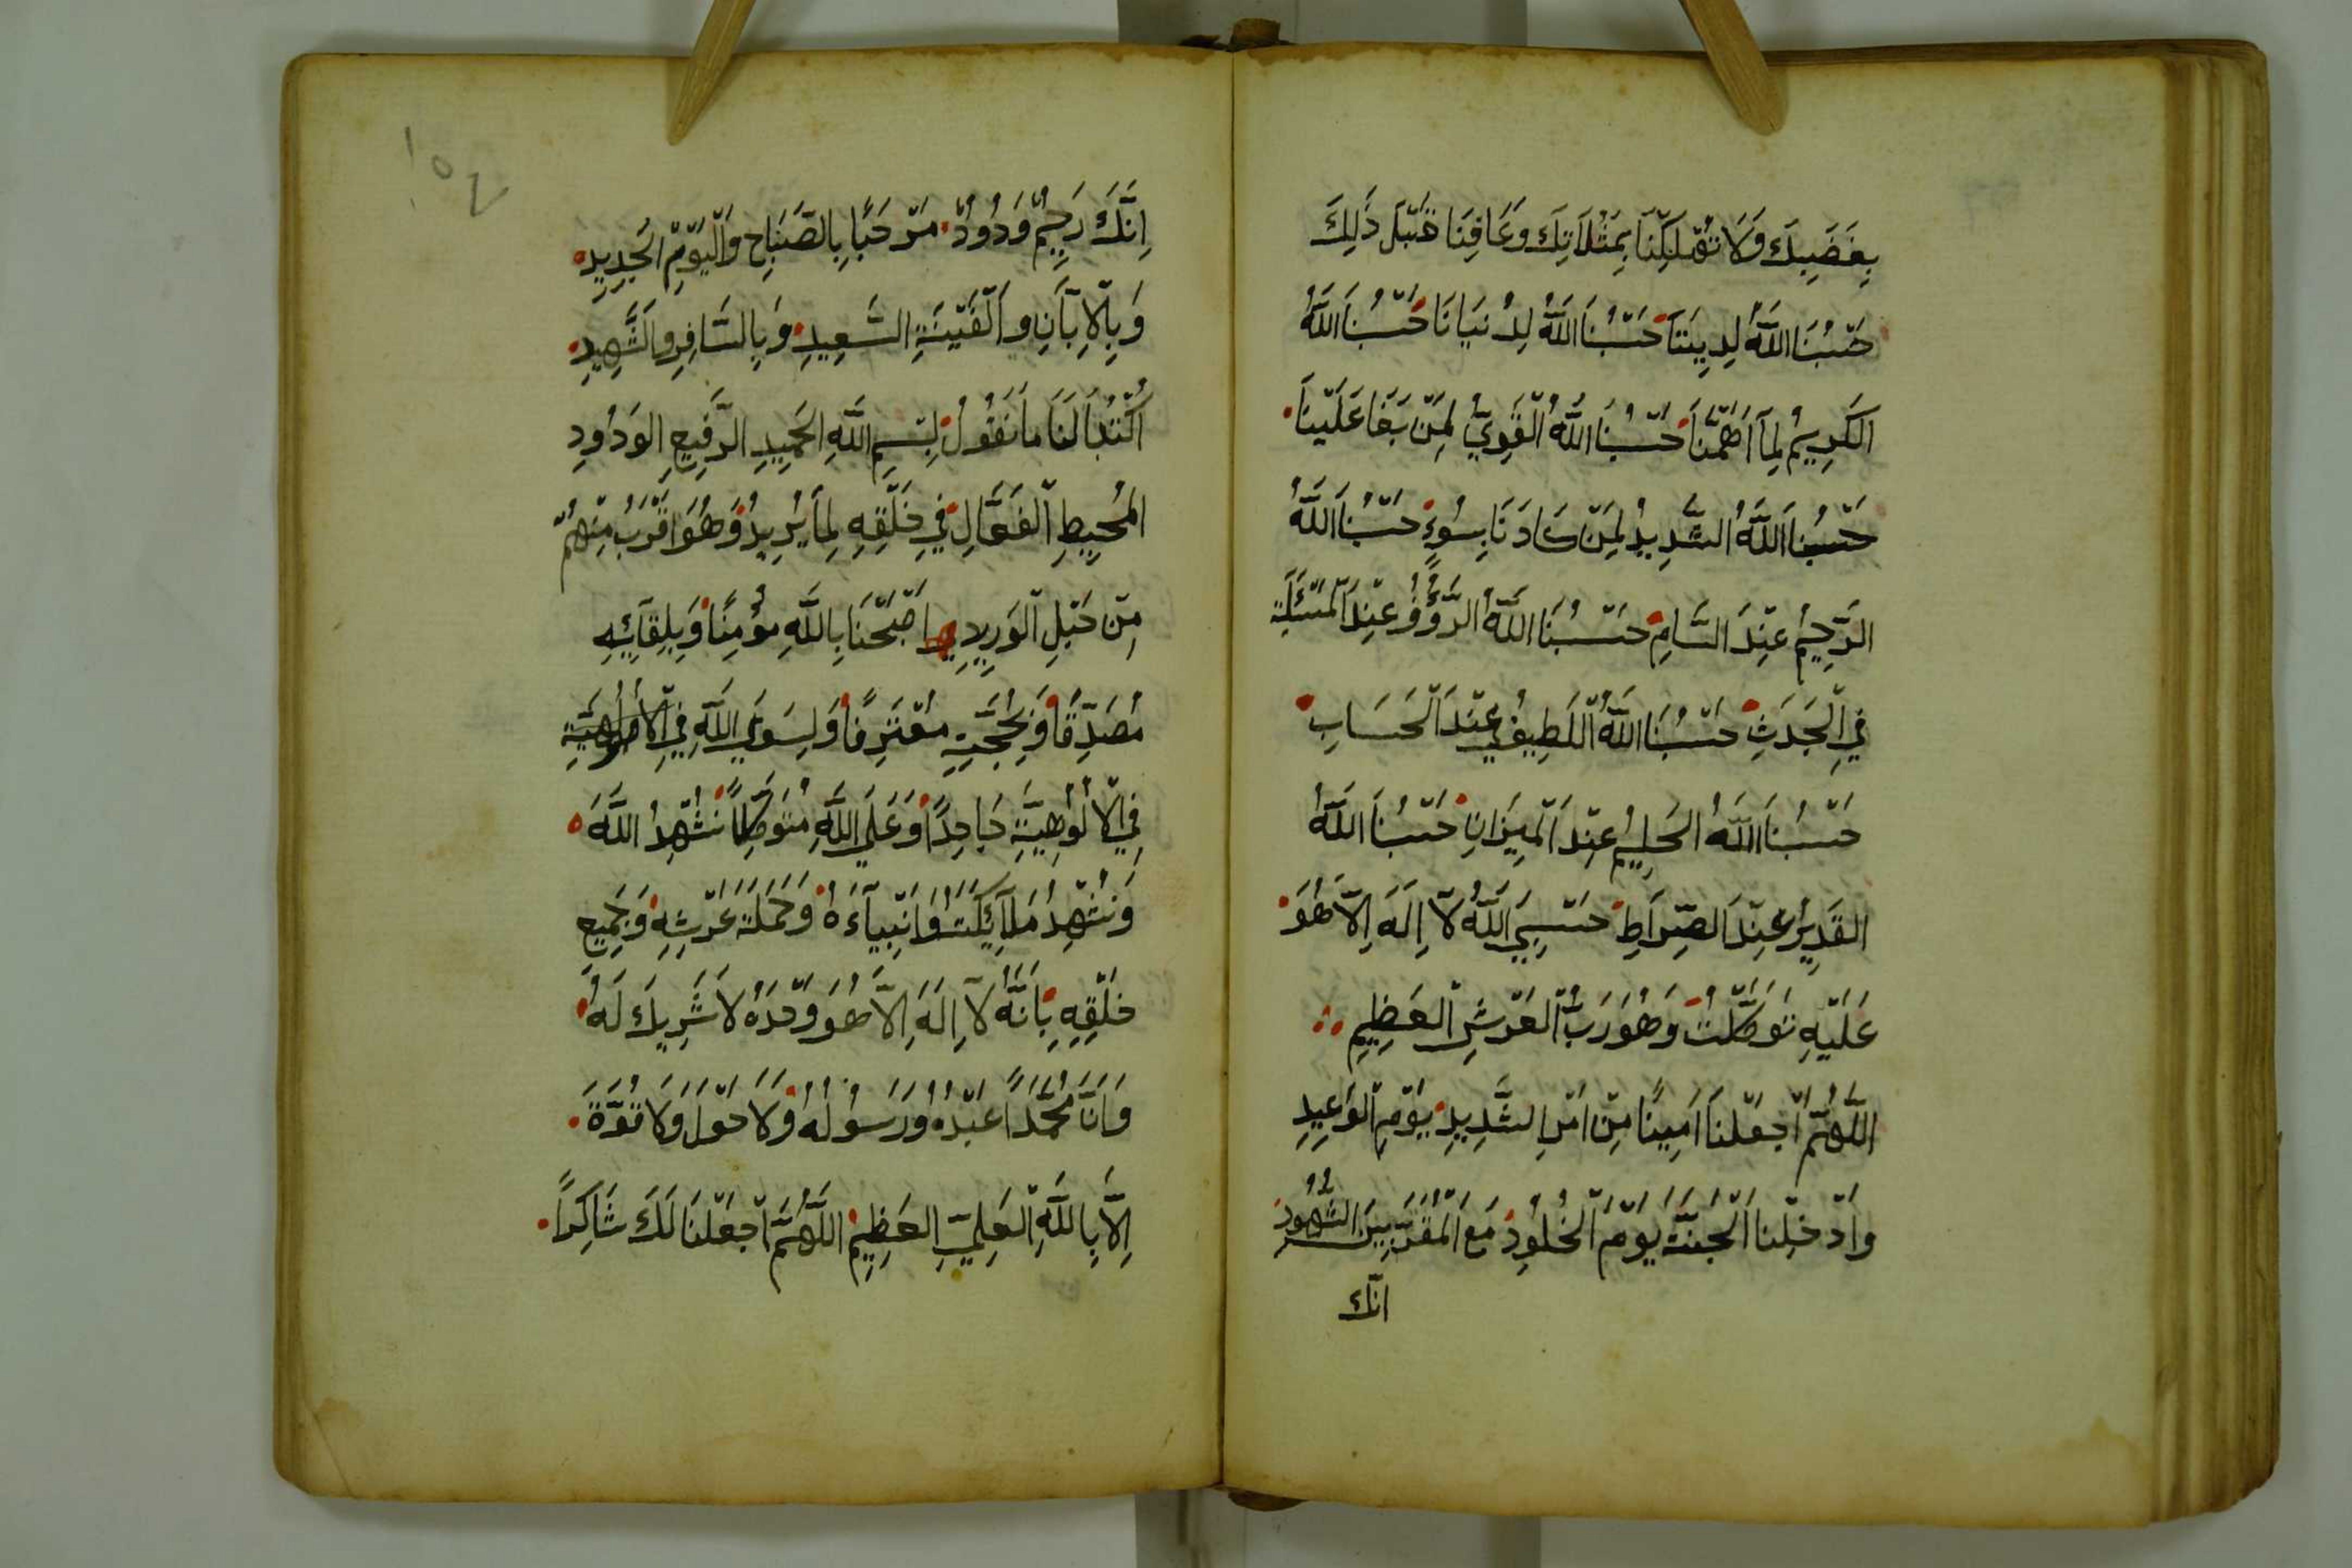 بِغَضَبِكَ وَلَا تُهْلِكْنَا بِمَثُلَاتِكَ وَعَافِنَا قَبْلَ ذَلِكَ
حَسْبُنَا اللَّهُ لِدِينِنَا حَسْبُنَا اللَّهُ لِدُنْيَانَا حَسْبُنَا اللَّهُ
الكَرِيمُ لِمَا اَهَمَّنَا حَسْبُنَا اللَّهُ الْقَوِيُّ لِمَنْ بَغَا عَلَيْنَا
حَسْبُنَا اللَّهُ الشَّدِيدُ لِمَنْ كَادَنَا بِسُوءٍ حَسْبُنَا اللَّهُ
الرَّحِيمُ عِنْدَ السَّامِ حَسْبُنَا اللَّهُ الرَّؤُفُ عِنْدَ الْمَسْئَلَةِ
فِي الْجَدَثِ حَسْبُنَا اللَّهُ اللَّطِيفُ عِنْدَ الْحَسَابِ
حَسْبُنَا اللَّهُ الحَلِيمُ عِنْدَ الْمِيزَانِ حَسْبُنَا اللَّهُ
القَدِيرُ عِنْدَ الصِّرَاطِ حَسْبِيَ اللَّهُ لَآ اِلَهَ اِلَّا هُوَ
عَلَيْهِ تَوَكَّلْتُ وَهُوَ رَبُّ الْعَرْشِ الْعَظِيمِ
اللَّهُمَّ اجْعَلْنَا اَمِينًا مِنْ اَمْرِ الشَّدِيدِ يَوْمِ الْوَعِيدِ
وَاَدْخِلْنَا الْجَنَّةَ يَوْمَ الْخُلُودِ مَعَ الْمُقَرَّبِينَ الشُّهُودِ
انّك
١٥٤
اِنَّكَ رَحِيمٌ وَدُودٌ مَرْحَبًا بِالصَّبَاحِ وَالْيَوْمِ الجَدِيدِ
وَبِالْاِبَّانِ وَالْفَيْنَةِ السَّعِيدِ وَبِالسَّافِرِ وَالشَّهِيدِ
اُكْتُبَا لَنَا مَا نَقُولُ بِسْمِ اللَّهِ الحَمِيدِ الرَّفِيعِ الوَدُودِ
المُحِيطِ الْفَعَّالِ فِي خَلْقِهِ لِمَا يُرِيدُ وَهُوَ اَقْرَبُ مِنْهُمْ
مِنْ حَبْلِ الْوَرِيدِ اَصْبَحْنَا بِاللَّهِ مُؤْمِنًا وَبِلِقَآئِهِ
مُصَدِّقًا وَبِحُجَّتِهِ مُعْتَرِفًا وَلِسِوَى اللَّهِ فِي الْاُلُوهِيَّةِ
فِي الْاُلُوْهِيَّةِ جَاحِدًا وَعَلَي اللَّهِ مُتَوَكِّلًا نُشْهِدُ اللَّهَ
وَنُشْهِدُ مَلَآئِكَتَهُ وَاَنْبِيَآءَهُ وَحَمَلَةَ عَرْشِهِ وَجَمِيعِ
خَلْقِهِ بِاَنَّهُ لَآ اِلَهَ اِلَّا هُوَ وَحْدَهُ لَا شَرِيكَ لَهُ
وَاَنَّ مُحَمَّدًا عَبْدُهُ وَرَسُولُهُ وَلَا حَوْلَ وَلَا قُوَّةَ
اِلَّا بِاللَّهِ الْعَلِيِّ الْعَظِيمِ اللَّهُمَّ اجْعَلْنَا لَكَ شَاكِرًا